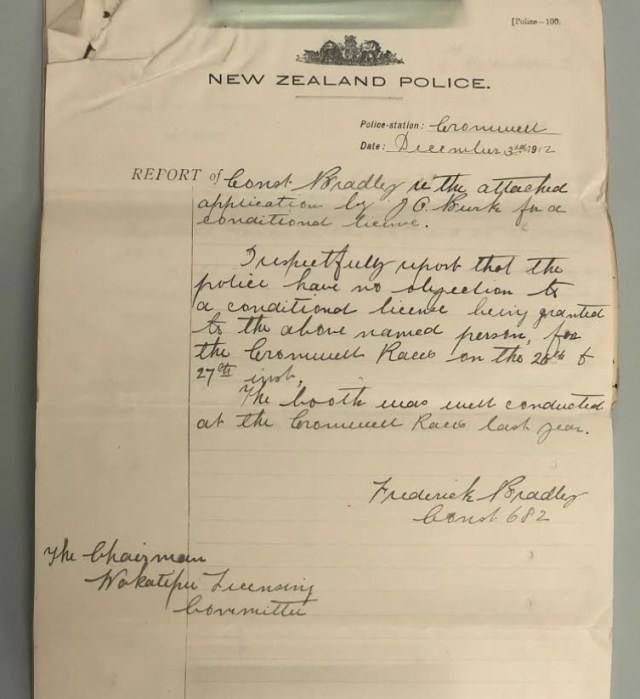 [Police—100.
NEW ZEALAND POLICE.
Police-station: Cromwell
Date: December 3rd 1912
REPORT of Const Bradley re the attached
application by J C. Burk for a
conditional license.
I respectfully report that the
police have no objection to
a conditional license being granted
to the above named person, for
the Cromwell Races on the 26th &
27th inst,
The booth was well conducted
at the Cromwell Races last year.
Frederick Bradley
Const 682
The Chairman
Wakatipu Licensing
Committee